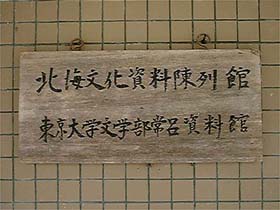 北海文化資料陳列館
東京大学文学部常呂資料館